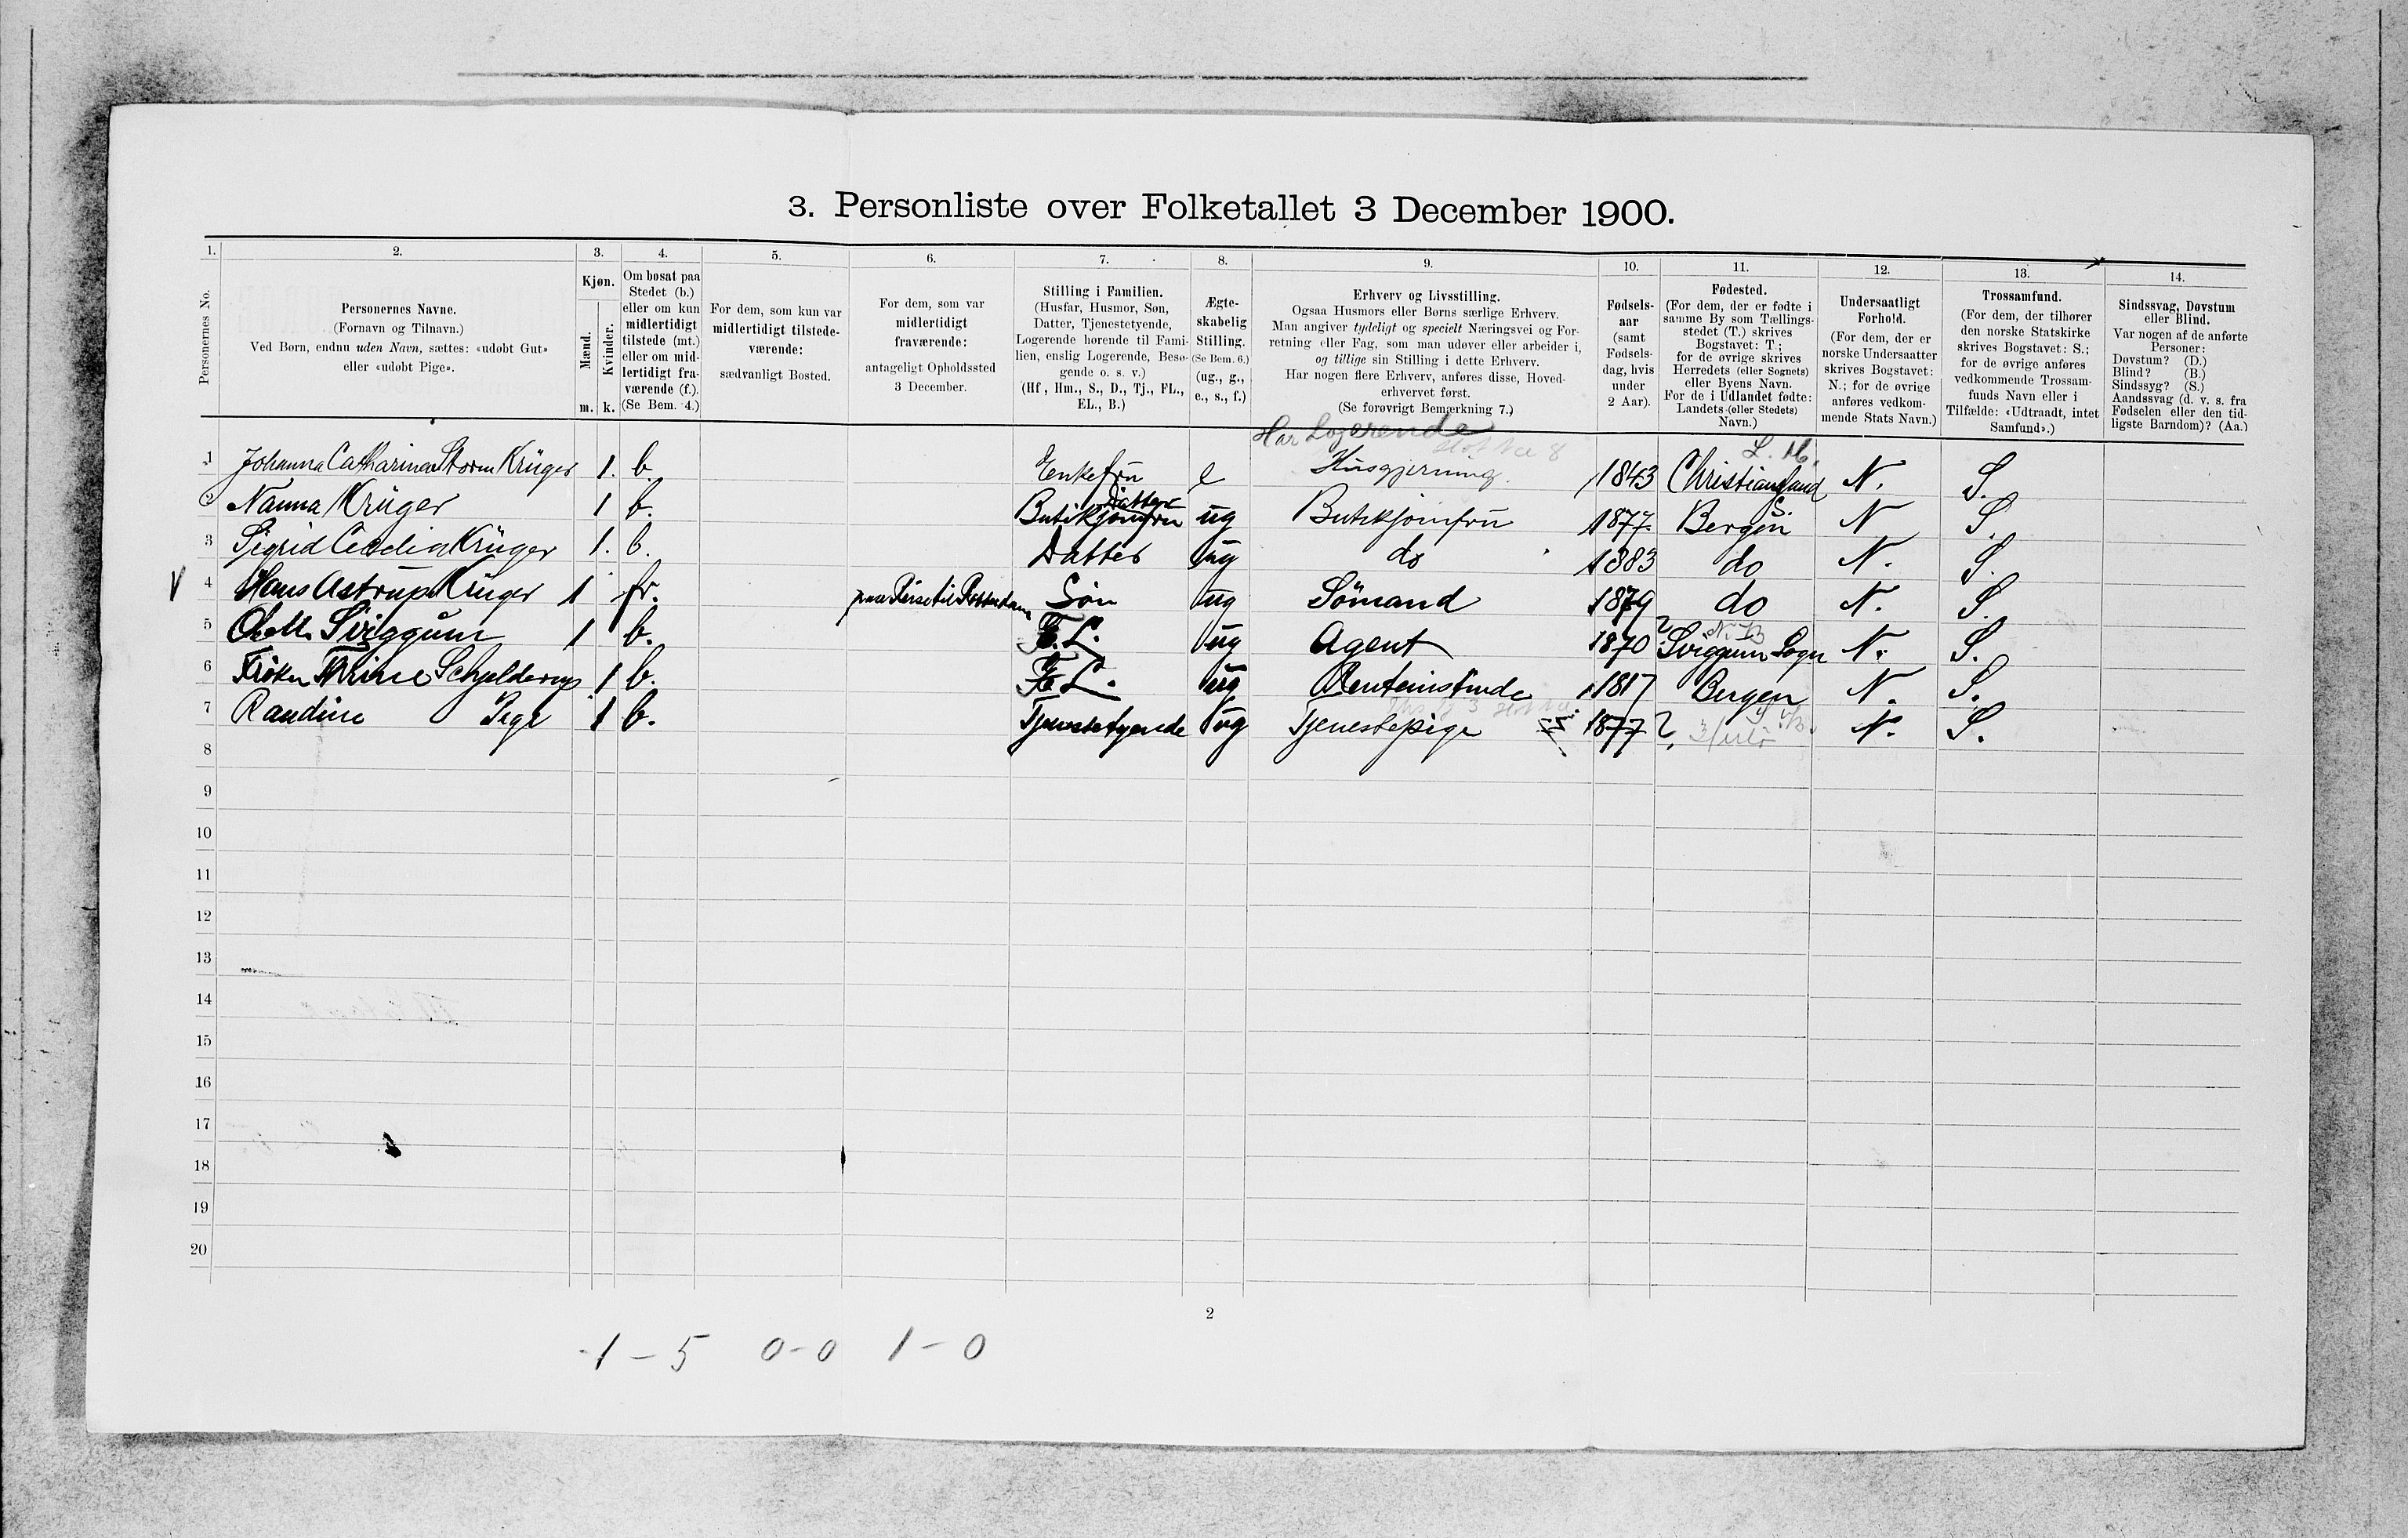 3. Personliste over Folketallet 3 December 1900.
1. 2. 3. 4. 5. 6. 7. 8. 9. 10. 11. 12. 13. 14.
Personernes No.
Personernes Navne.
(Fornavn og Tilnavn.)
Ved Børn, endnu uden Navn, sættes: «udøbt Gut»
eller «udøbt Pige».
Kjøn.
Mænd.
Kvinder.
m. k.
Om bosat paa
Stedet (b.)
eller om kun
midlertidigt
tilstede (mt.)
eller om mid-
lertidigt fra-
værende (f.).
(Se Bem. 4.)
For dem, som kun var
midlertidigt tilstede-
værende:
sædvanligt Bosted.
For dem, som var
midlertidigt
fraværende:
antageligt Opholdssted
3 December.
Stilling i Familien.
(Husfar, Husmor, Søn,
Datter, Tjenestetyende,
Logerende hørende til Fami-
lien, enslig Logerende, Besø-
gende o. s. v.)
(Hf, Hm., S., D., Tj., FL.,
EL., B.)
Ægte-
skabelig
Stilling.
(Se Bem. 6.)
(ug., g.,
e., s., f.)
Erhverv og Livsstilling.
Ogsaa Husmors eller Børns særlige Erhverv.
Man angiver tydeligt og specielt Næringsvei og For-
retning eller Fag, som man udøver eller arbeider i,
og tillige sin Stilling i dette Erhverv.
Har nogen flere Erhverv, anføres disse, Hoved-
erhvervet først.
(Se forøvrigt Bemærkning 7.)
Fødsels-
aar
(samt
Fødsels-
dag, hvis
under
2 Aar).
Fødested.
(For dem, der er fødte i
samme By som Tællings-
stedet (T.) skrives
Bogstavet: T;
for de øvrige skrives
Herredets (eller Sognets)
eller Byens Navn.
For de i Udlandet fødte:
Landets (eller Stedets)
Navn.)
Undersaatligt
Forhold.
(For dem, der er
norske Undersaatter
skrives Bogstavet:
N.; for de øvrige
anføres vedkom-
mende Stats Navn.)
Trossamfund.
(For dem, der tilhører
den norske Statskirke
skrives Bogstavet: S.;
for de øvrige anføres
vedkommende Trossam-
funds Navn eller i
Tilfælde: «Udtraadt, intet
Samfund».)
Sindssvag, Døvstum
eller Blind.
Var nogen af de anførte
Personer:
Døvstum? (D.)
Blind? (B.)
Sindssyg? (S.)
Aandssvag (d. v. s. fra
Fødselen eller den tid-
ligste Barndom)? (Aa.)
Har Logerende
1 Johanna Catharina Storm Krüger 1. b. Enkefru e Husgjerning. 1843 Christiansand N. S.
Datter
2 Nanna Krüger 1 b. Butikjomfru ug Butikjomfru 1877 Bergen N S.
3 Sigrid Krüger 1. b. Datter ug do 1883 do N. S.
V 4 Hans Astrup Krüger 1 fr. paa Reise til Rotterdam Søn ug Sömand 1879 do N. S.
5 Sviggum 1 b. E. L. ug Agent 1870 Sviggum Sogn N. S.
6 Frøken Thrine Schjelderup 1 b. E L. ug Renteinstinde 1817 Bergen N. S.
7 Randine Pige 1 b. Tjenestetyende ug Tjenestepige 1877 N. S.
8
9
10
11
12
13
14
15
16
17
18
19
20
2
1 - 5 0 - 0 1 - 0